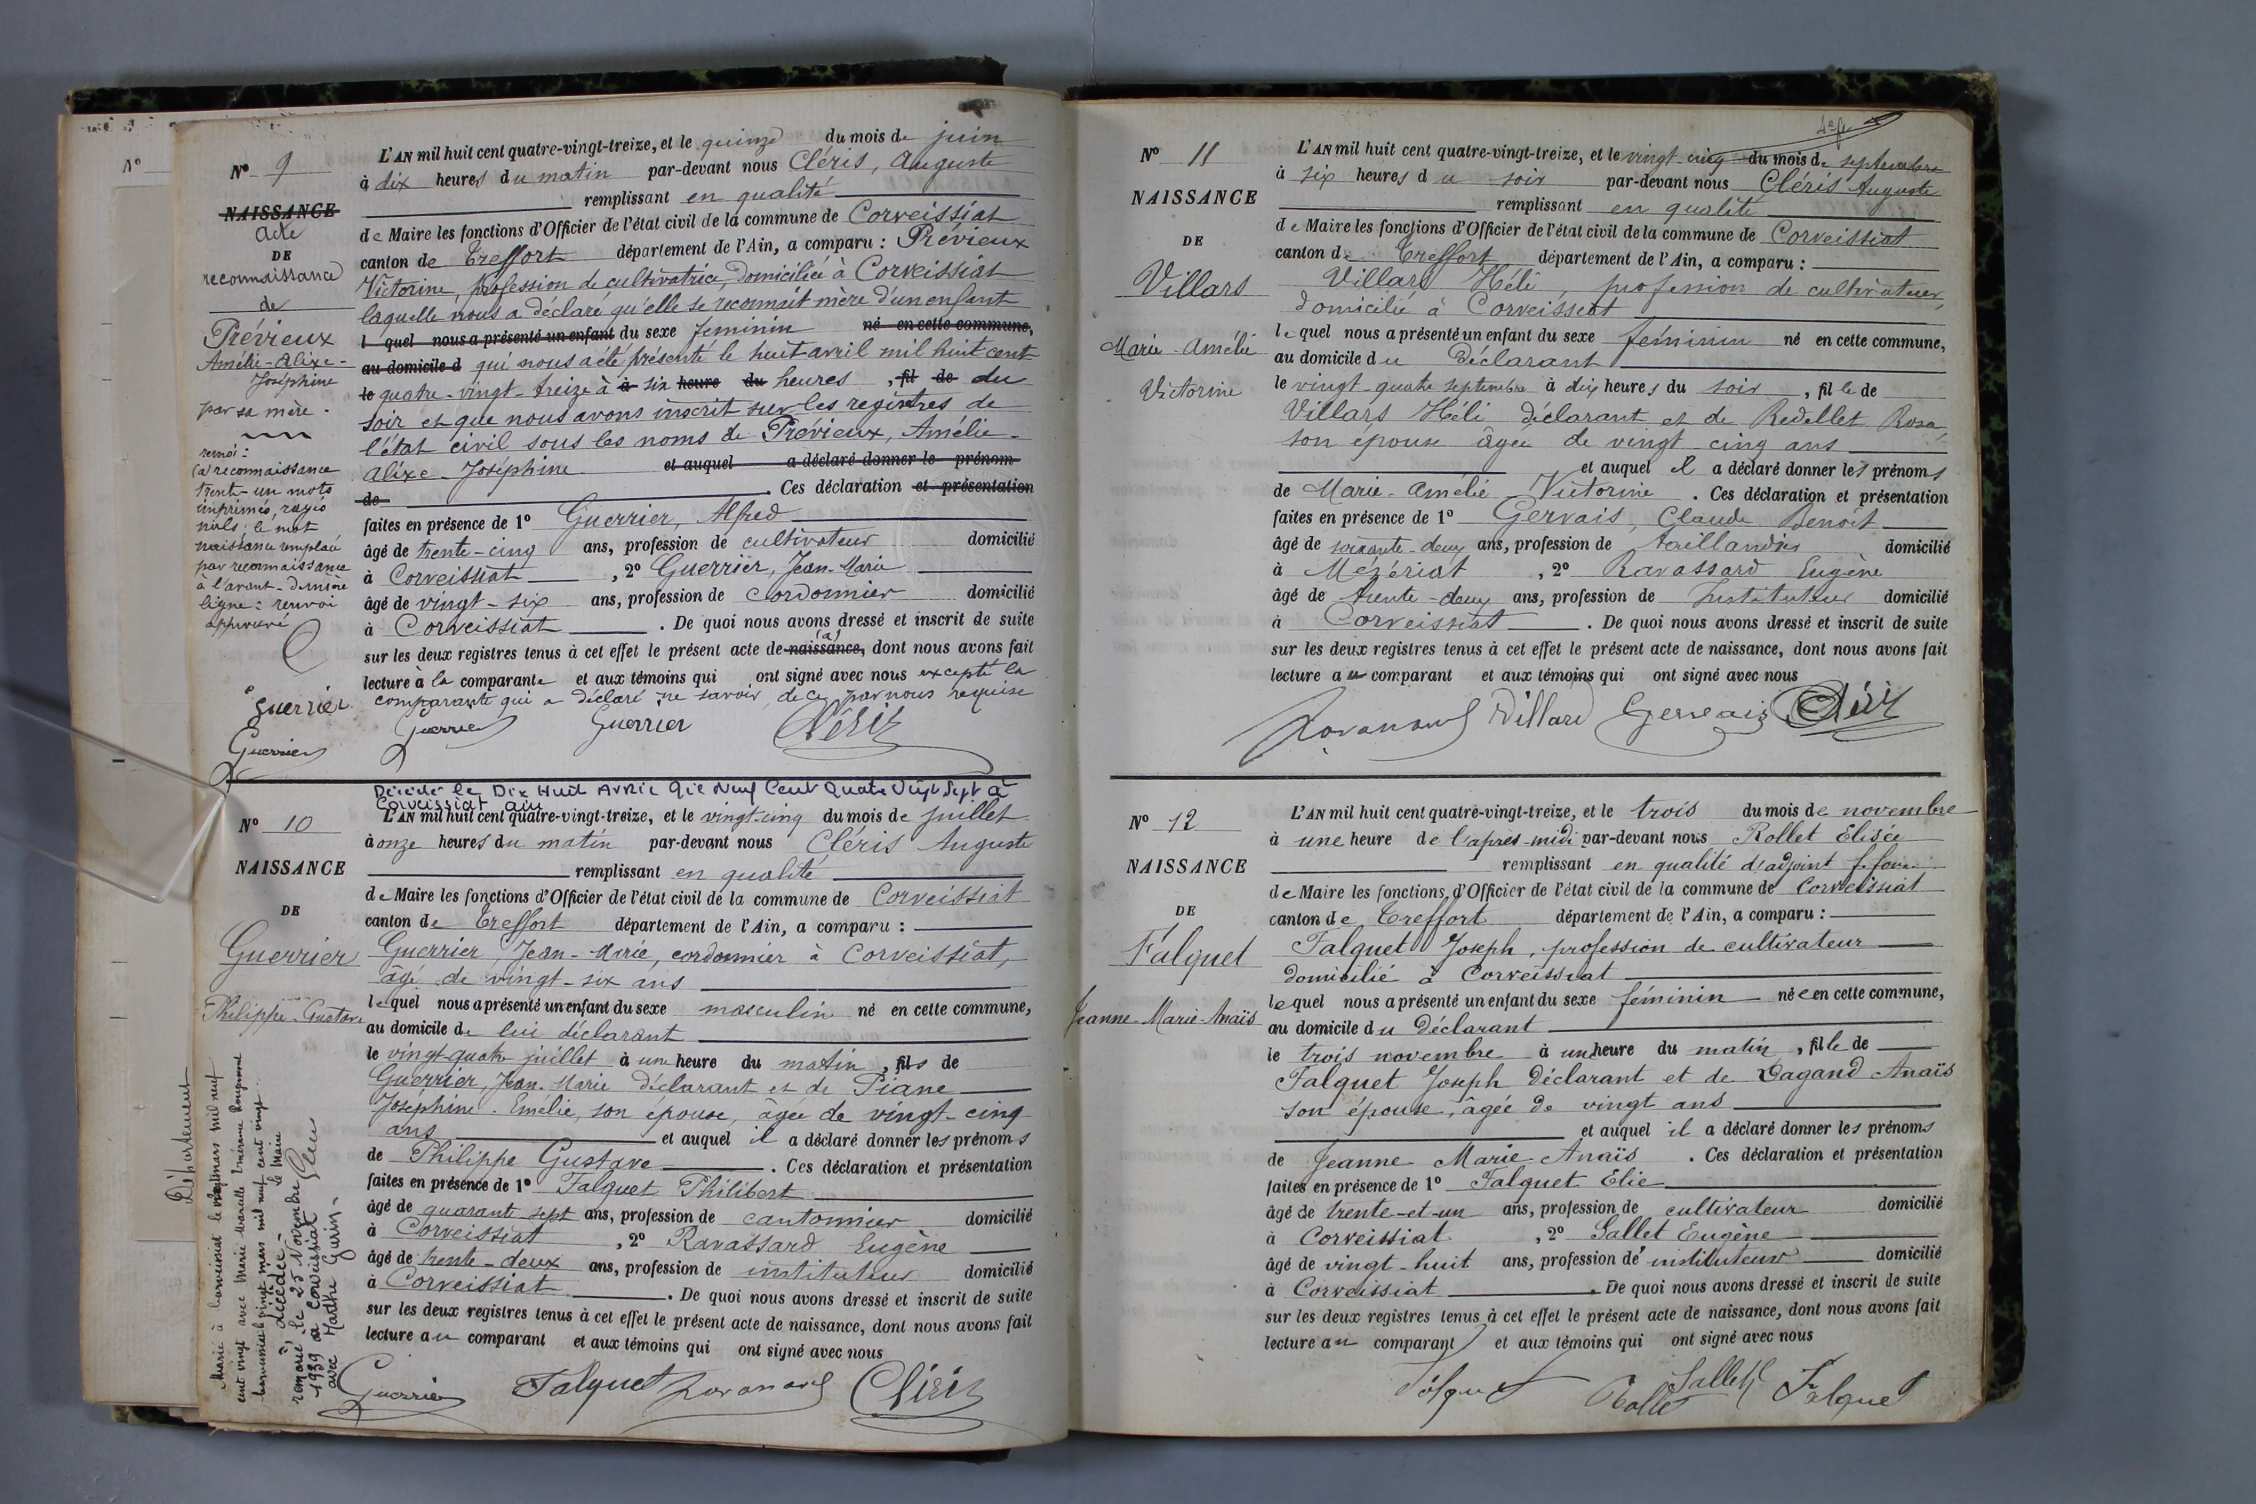 Nº 9
NAISSANCE
acte
DE
reconnaissance
de
Prévieux
Amélie-Alixe-
Joséphine
par sa mère.
renvoi:
(a) reconnaissance
trente-un mots
imprimés, rayés
nuls; le mot
naissance remplacé
par reconnaissance
à l'avant-dernière
ligne: renvoi
approuvé
Guerrier
Guerrier
L'AN mil huit cent quatre-vingt-treize, et le quinze du mois de juin
à dix heures du matin par-devant nous Cléris, Auguste
remplissant en qualité
de Maire les fonctions d'Officier de l'état civil de la commune de Corveissiat
canton de Treffort département de l'Ain, a comparu : Prévieux
Victorine, profession de cultivatrice, domiciliée à Corveissiat
laquelle nous a déclaré qu'elle se reconnait mère d'un enfant
l quel nous a présenté un enfant du sexe féminin né en cette commune,
au domicile d qui nous a été présenté le huit avril mil huit cent
le quatre-vingt-treize à à six heure du heures , fil de du
soir et que nous avons inscrit sur les registres de
l'état civil sous les noms de Prévieux, Amélie-
Alixe-Joséphine et auquel a déclaré donner le prénom
de . Ces déclaration et présentation
faites en présence de 1º Guerrier, Alfred
âgé de trente-cinq ans, profession de cultivateur domicilié
à Corveissiat , 2º Guerrier, Jean-Marie
âgé de vingt-six ans, profession de cordonnier domicilié
à Corveissiat . De quoi nous avons dressé et inscrit de suite
(a)
sur les deux registres tenus à cet effet le présent acte de naissance, dont nous avons fait
lecture à la comparante et aux témoins qui ont signé avec nous excepté la
comparante qui a déclaré ne savoir, de ce par nous requise
Guerrier Guerrier Cléris
Décédé le Dix Huit Avril Mil Neuf Cent Quatre Vingt Sept à
Corveissiat Ain
Nº 10
NAISSANCE
DE
Guerrier
Philippe-Gustave
Marié à Corveissiat le vingt mars mil neuf
cent vingt avec Marie Marcelle
Corveissiat le vingt mars mil neuf cent vingt
le Maire
décédée-
remarié le 25 Novembre
1939 à Corveissiat
avec Marthe Guérin-
L'AN mil huit cent quatre-vingt-treize, et le vingt-cinq du mois de juillet
à onze heures du matin par-devant nous Cléris Auguste
remplissant en qualité
de Maire les fonctions d'Officier de l'état civil de la commune de Corveissiat
canton de Treffort département de l'Ain, a comparu :
Guerrier, Jean-Marie, cordonnier à Corveissiat,
âgé de vingt-six ans
lequel nous a présenté un enfant du sexe masculin né en cette commune,
au domicile de lui déclarant
le vingt-quatre juillet à une heure du matin, fils de
Guerrier, Jean-Marie déclarant et de Piane
Joséphine-Emélie, son épouse, âgée de vingt-cinq
ans et auquel il a déclaré donner les prénoms
de Philippe Gustave . Ces déclaration et présentation
faites en présence de 1º Falquet Philibert
âgé de quarante sept ans, profession de cantonnier domicilié
à Corveissiat , 2º Ravassard Eugène
âgé de trente-deux ans, profession de instituteur domicilié
à Corveissiat . De quoi nous avons dressé et inscrit de suite
sur les deux registres tenus à cet effet le présent acte de naissance, dont nous avons fait
lecture au comparant et aux témoins qui ont signé avec nous
Guerrier Falquet Ravassard Cléris
Département
Nº
Nº 11
NAISSANCE
DE
Villars
Marie-Amélie
Victorine
L'AN mil huit cent quatre-vingt-treize, et le vingt-cinq du mois de septembre
à six heures du soir par-devant nous Cléris Auguste
remplissant en qualité
de Maire les fonctions d'Officier de l'état civil de la commune de Corveissiat
canton de Treffort département de l'Ain, a comparu :
Villars Héli, profession de cultivateur,
domicilié à Corveissiat
lequel nous a présenté un enfant du sexe féminin né en cette commune,
au domicile du déclarant
le vingt-quatre septembre à dix heures du soir , fille de
Villars Héli déclarant et de Redellet Rosa,
son épouse âgée de vingt cinq ans
et auquel il a déclaré donner les prénoms
de Marie-Amélie Victorine . Ces déclaration et présentation
faites en présence de 1º Gervais, Claude Benoît
âgé de soixante-deux ans, profession de taillandier domicilié
à Mézériat , 2º Ravassard Eugène
âgé de trente-deux ans, profession de Instituteur domicilié
à Corveissiat . De quoi nous avons dressé et inscrit de suite
sur les deux registres tenus à cet effet le présent acte de naissance, dont nous avons fait
lecture au comparant et aux témoins qui ont signé avec nous
Ravassard Villard Gervais Cléris
Nº 12
NAISSANCE
DE
Falquet
Jeanne-Marie-Anaïs
L'AN mil huit cent quatre-vingt-treize, et le trois du mois de novembre
à une heure de l'après-midi par-devant nous Rollet Elisée
remplissant en qualité d'adjoint f. fons
de Maire les fonctions d'Officier de l'état civil de la commune de Corveissiat
canton de Treffort département de l'Ain, a comparu :
Falquet Joseph, profession de cultivateur
domicilié à Corveissiat
lequel nous a présenté un enfant du sexe féminin née en cette commune,
au domicile du déclarant
le trois novembre à une heure du matin, fille de
Falquet Joseph déclarant et de Dagand Anaïs
son épouse, âgée de vingt ans
et auquel il a déclaré donner les prénoms
de Jeanne Marie Anaïs . Ces déclaration et présentation
faites en présence de 1º Falquet Elie
âgé de trente-et-un ans, profession de cultivateur domicilié
à Corveissiat , 2º Sallet Eugène
âgé de vingt-huit ans, profession de instituteur domicilié
à Corveissiat . De quoi nous avons dressé et inscrit de suite
sur les deux registres tenus à cet effet le présent acte de naissance, dont nous avons fait
lecture au comparant et aux témoins qui ont signé avec nous
Falquet Rollet Sallet Falquet